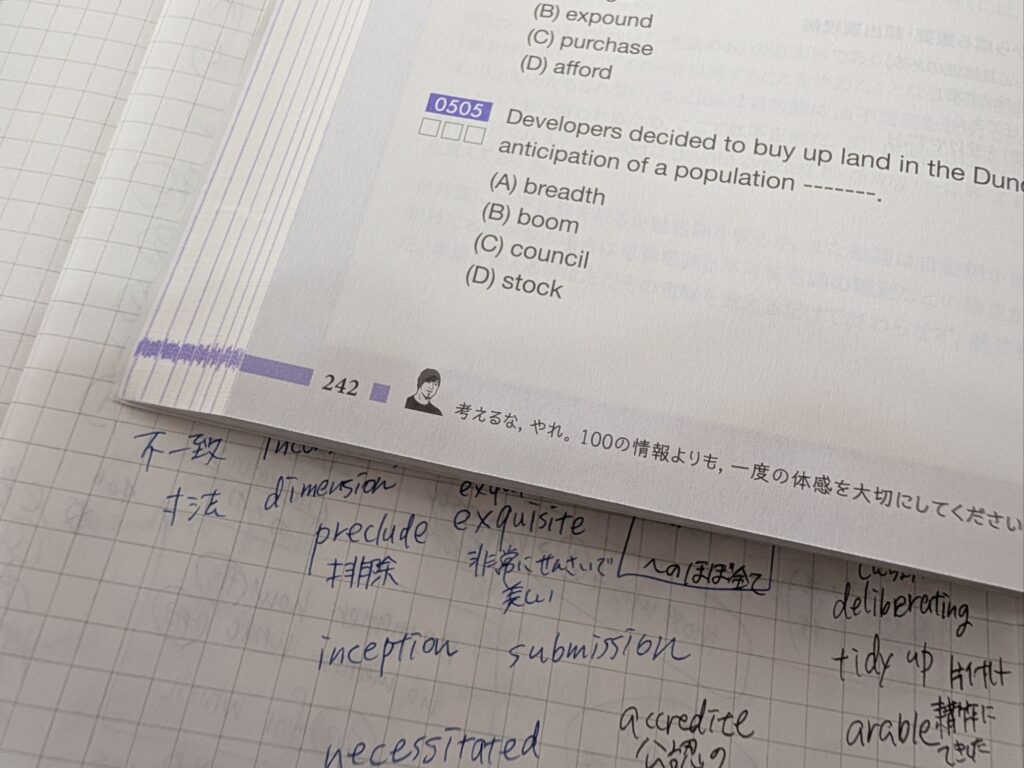 (B) expound
(C) purchase
(D) afford
0505
Developers decided to buy up land in the
anticipation of a population -------.
(A) breadth
(B) boom
(C) council
(D) stock
242
考えるな，やれ。100の情報よりも，一度の体感を大切にしてください
不一致
寸法 dimension
preclude exquisite
排除 非常にせんさいで
美しい
へのほぼ全て
deliberating
inception submission
tidy up 片付け
accredite
公認の
arable 耕作に
できた
necessitated